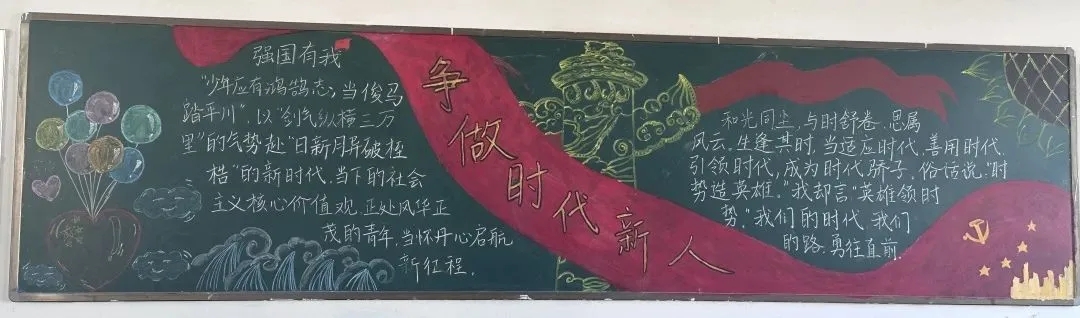 强国有我
"少年应有鸿鹄志,当俊马
踏平川". 以"剑气纵横三万
里"的气势赴"日新月异破桎
梏"的新时代.当下的社会
主义核心价值观.正处风华正
茂的青年.当怀丹心启航
新征程.
争做时代新人
和光同尘,与时舒卷.思属
风云.生逢其时,当适应时代.善用时代
引领时代,成为时代骄子.俗话说:"时
势造英雄."我却言"英雄领时
势."我们的时代.我们
的路.勇往直前.